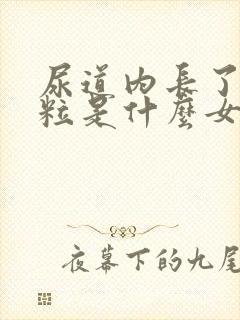 尿道内長了
粒是什麼女
夜幕下的九尾